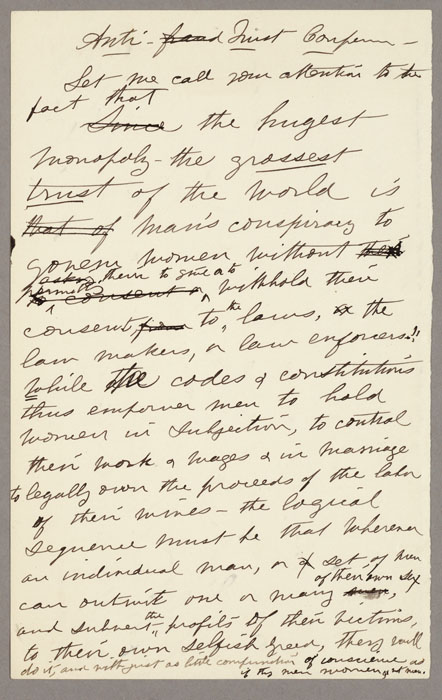 Anti - fraud Trust Conferen -
Let me call your attention to the
fact that
Since the hugest
monopoly - the grossest
trust of the world is
that of man's conspiracy to
govern women without
asking them to give or to
consent or withhold their
consent from to the laws, or the
law makers, or law enforcers.!!
While the codes & constitutions
thus empower men to hold
women in subjection, to control
their work & wages & in marriage
to legally own the proceeds of the labor
of their wives - the logical
sequence must be that wherever
an individual man, or a set of men
of their own sex
can outwit one or many men,
and subvert the profits of their victims,
to their own selfish greed, they will
do it, and with just as little compunction of conscience as
if they were women & not men.